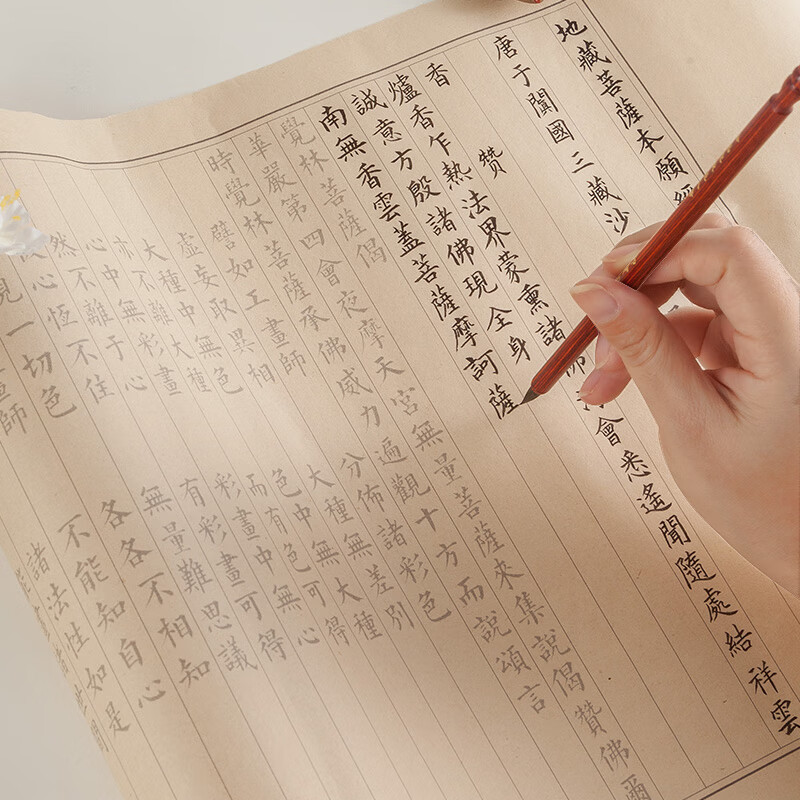 地藏菩薩本願經
唐于闐國三藏沙
香 赞
爐香乍熱法界蒙熏諸佛海會悉遙聞隨處結祥雲
誠意方殷諸佛現全身
南無香雲蓋菩薩摩訶薩
覺林菩薩偈
華嚴第四會夜摩天宮無量菩薩來集說偈贊佛爾
時覺林菩薩承佛威力遍觀十方而說頌言
譬如工畫師 分佈諸彩色
虛妄取異相 大種無差別
大種中無色 色中無大種
亦不離大種 而有色可得
心中無彩畫 彩畫中無心
然不離于心 有彩畫可得
心恆不住 無量難思議
現一切色 各各不相知
畫師 不能知自心
諸法性如是